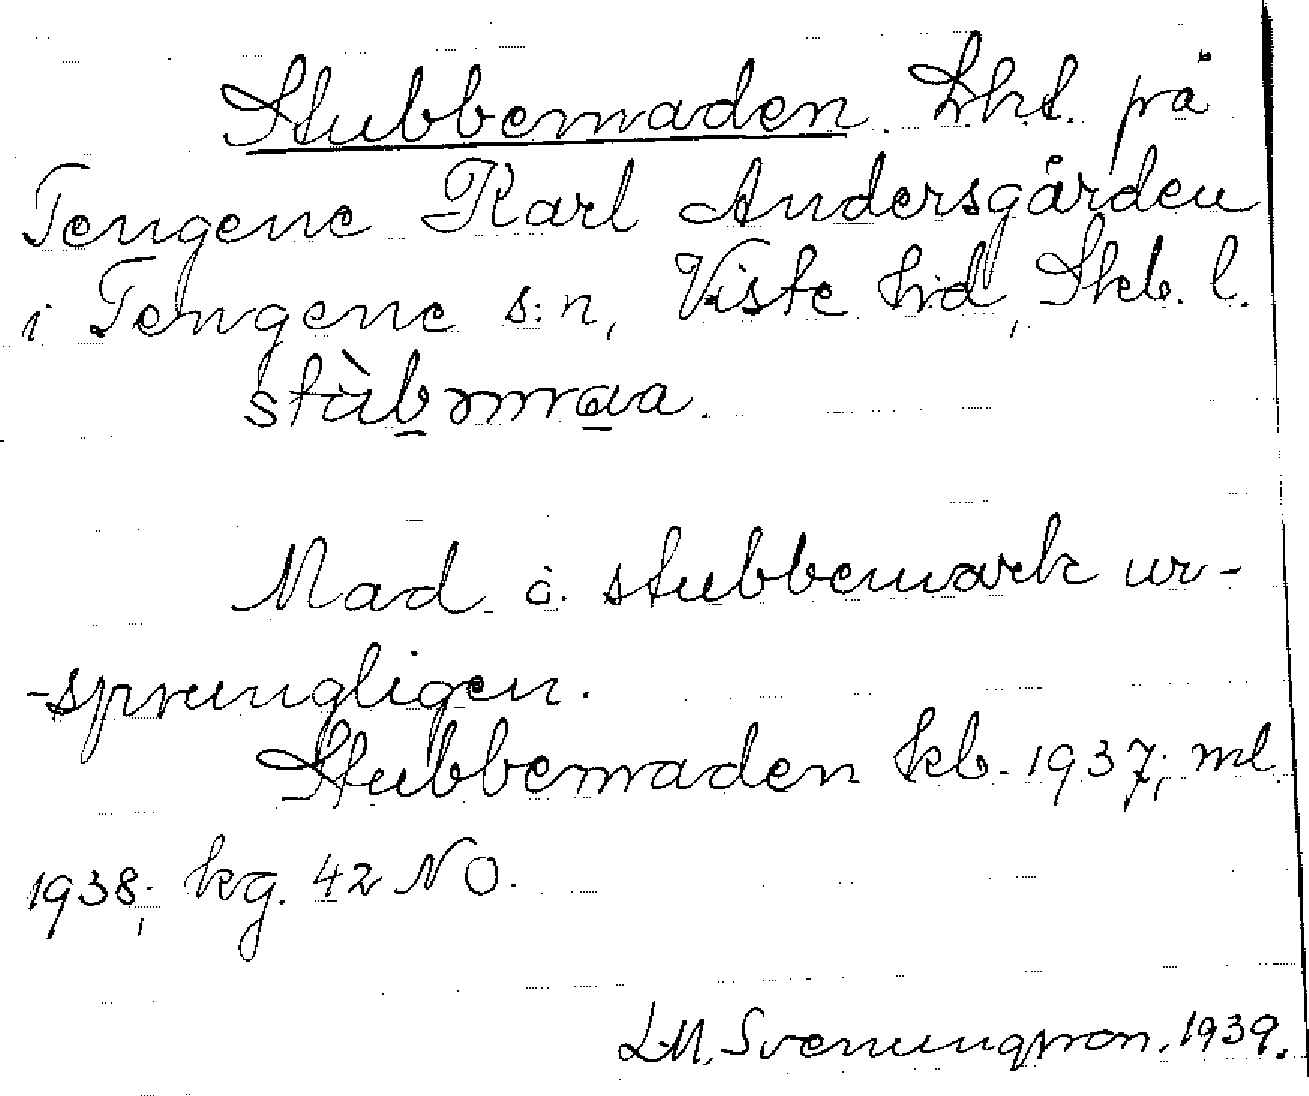 Stubbemaden. Lht. på
Tengene Karl Andersgården
i Tengene s:n, Viste hd, Skb. l.
stùbmmaa.
Mad å stubbemark ur-
-sprungligen.
Stubbemaden kb. 1937; ml
1938; kg. 42 NO.
L.M. Svenungsson. 1939.